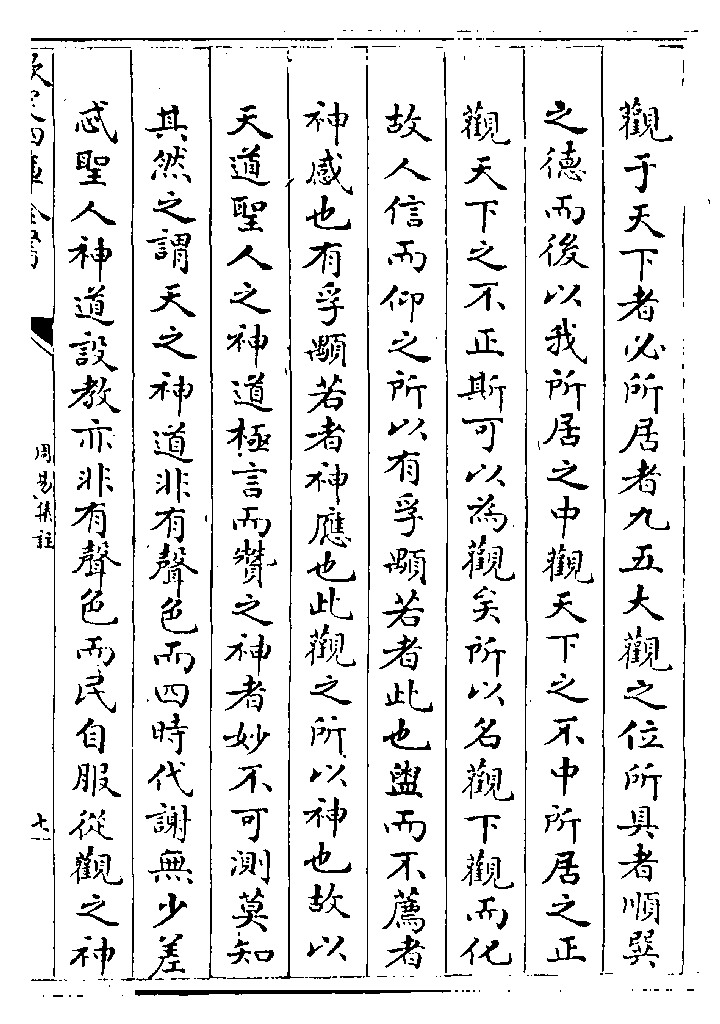 觀于天下者必所居者九五大觀之位所具者順巽
之德而後以我所居之中觀天下之不中所居之正
觀天下之不正斯可以為觀矣所以名觀下觀而化
故人信而仰之所以有孚顒若者此也盥而不薦者
神感也有孚顒若者神應也此觀之所以神也故以
天道聖人之神道極言而贊之神者妙不可測莫知
其然之謂天之神道非有聲色而四時代謝無少差
忒聖人神道設教亦非有聲色而民自服從觀之神
欽定四庫全書
周易集註